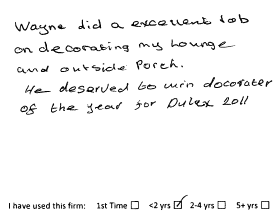 Wayne did a excellent Job
on decorating my Lounge
and outside Porch.
He deserved to win docorater
of the year for Dulex 2011
I have used this firm: 1st Time ☐ <2 yrs ☑ 2-4 yrs ☐ 5+ yrs ☐